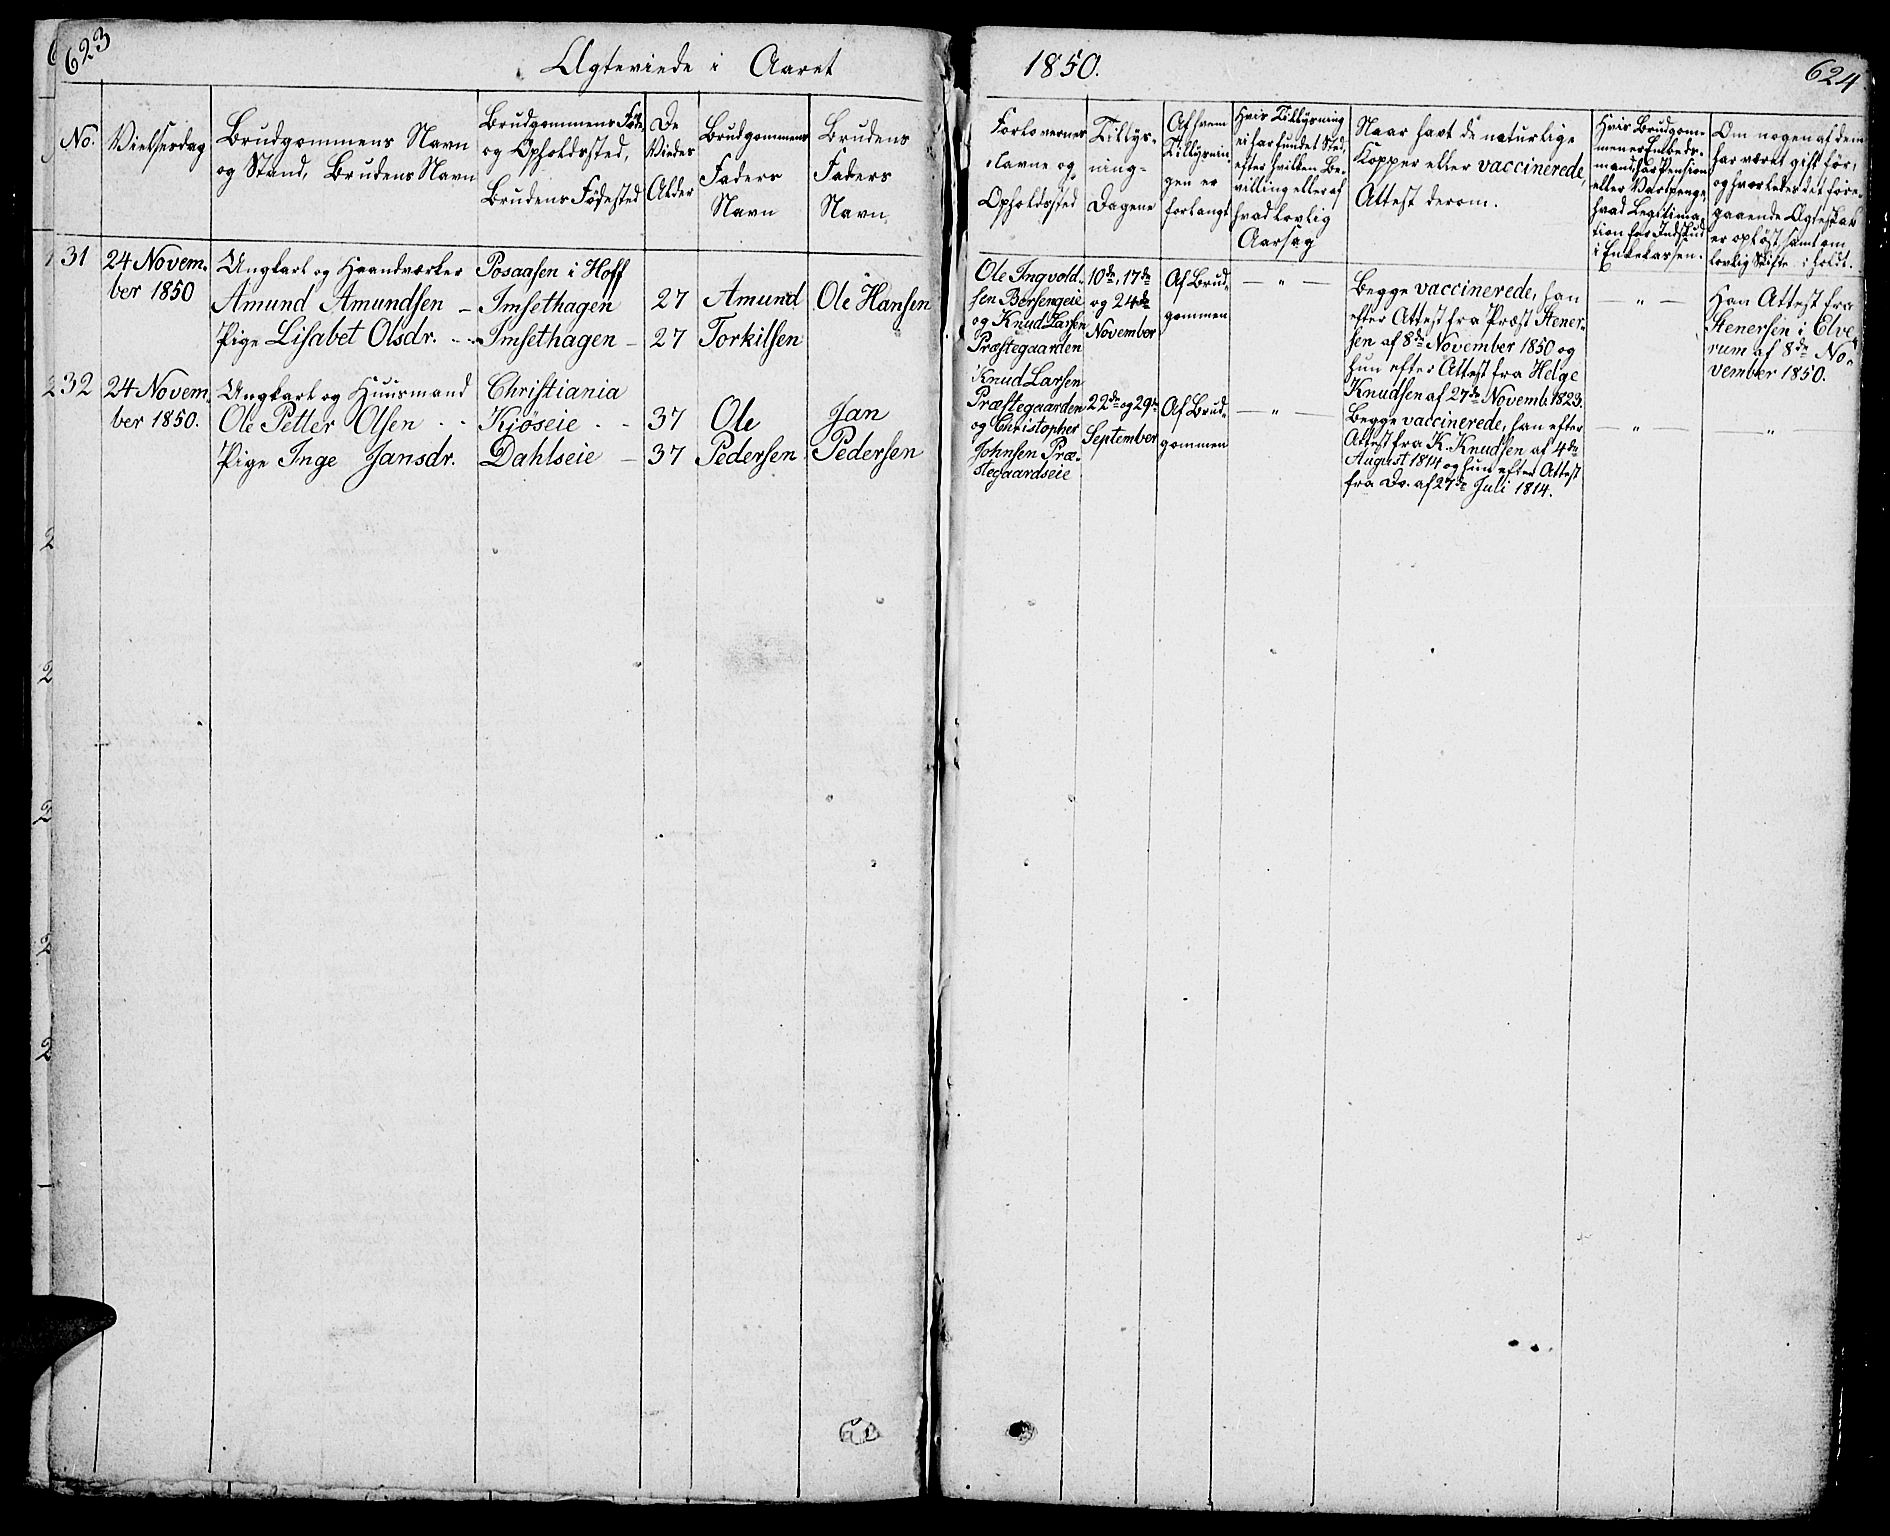 623
Ægteviede i Aaret
1850.
624
No.
Vielsesdag
Brudgommens Navn
og Stand, Brudens Navn
Brudgommens Føde-
og Opholdssted,
Brudens Fødested
De
Viedes
Alder
Brudgommens
Faders
Navn
Brudens
Faders
Navn
Forlovernes
Navne og
Opholdssted
Tillys-
nings-
Dagene
Af hvem
Tillysnin-
gen er
forlangt
Hvis Tillysning
ei har fundet Sted,
efter hvilken Be-
villing eller af
hvad lovlig
Aarsag
Naar havt de naturlige
Kopper eller vaccinerede,
Attest derom.
Hvis Brudgom-
men er Embeds-
mand, har Pension
eller Vartpenge,
hvad Legitima-
tion for Indskud
i Enkekassen.
Om nogen af dem
har været gift før,
og hvorledes det fore-
gaaende Ægteskab
er opløst, samt om
lovlig Skifte i holdt.
31
24 Novem-
ber 1850
Ungkarl og Haandværker
Amund Amundsen
Pige Lisabet Olsdr.
Posaasen i Hoff
Imsethagen
Imsethagen
27
27
Amund
Torkilsen
Ole Hansen
Ole Ingvold-
sen Børsengeie
og Knud Larsen
Præstegaarden
10de, 17de
og 24de
November
Af Brud-
gommen
— „ —
Begge vaccinerede, han
efter Attest fra Præst Stener-
sen af 8de November 1850 og
hun efter Attest fra Helge
Knudsen af 27de Novemb. 1823.
— „ —
Han Attest fra
Stenersen i Elve-
rum af 8de No-
vember 1850.
32
24 Novem-
ber 1850.
Ungkarl og Huusmand
Ole Petter Olsen
Pige Inge Jansdr.
Christiania
Kiøseie
Dahlseie
37
37
Ole
Pedersen
Jan
Pedersen
Knud Larsen
Præstegaarden
og Christopher
Johnsen Præ-
stegaardseie
22de og 29de
September
Af Brud-
gommen
— „ —
Begge vaccinerede, han efter
Attest fra K. Knudsen af 4de
August 1814 og hun efter Attest
fra Do. af 27de Juli 1814.
— „ —
— „